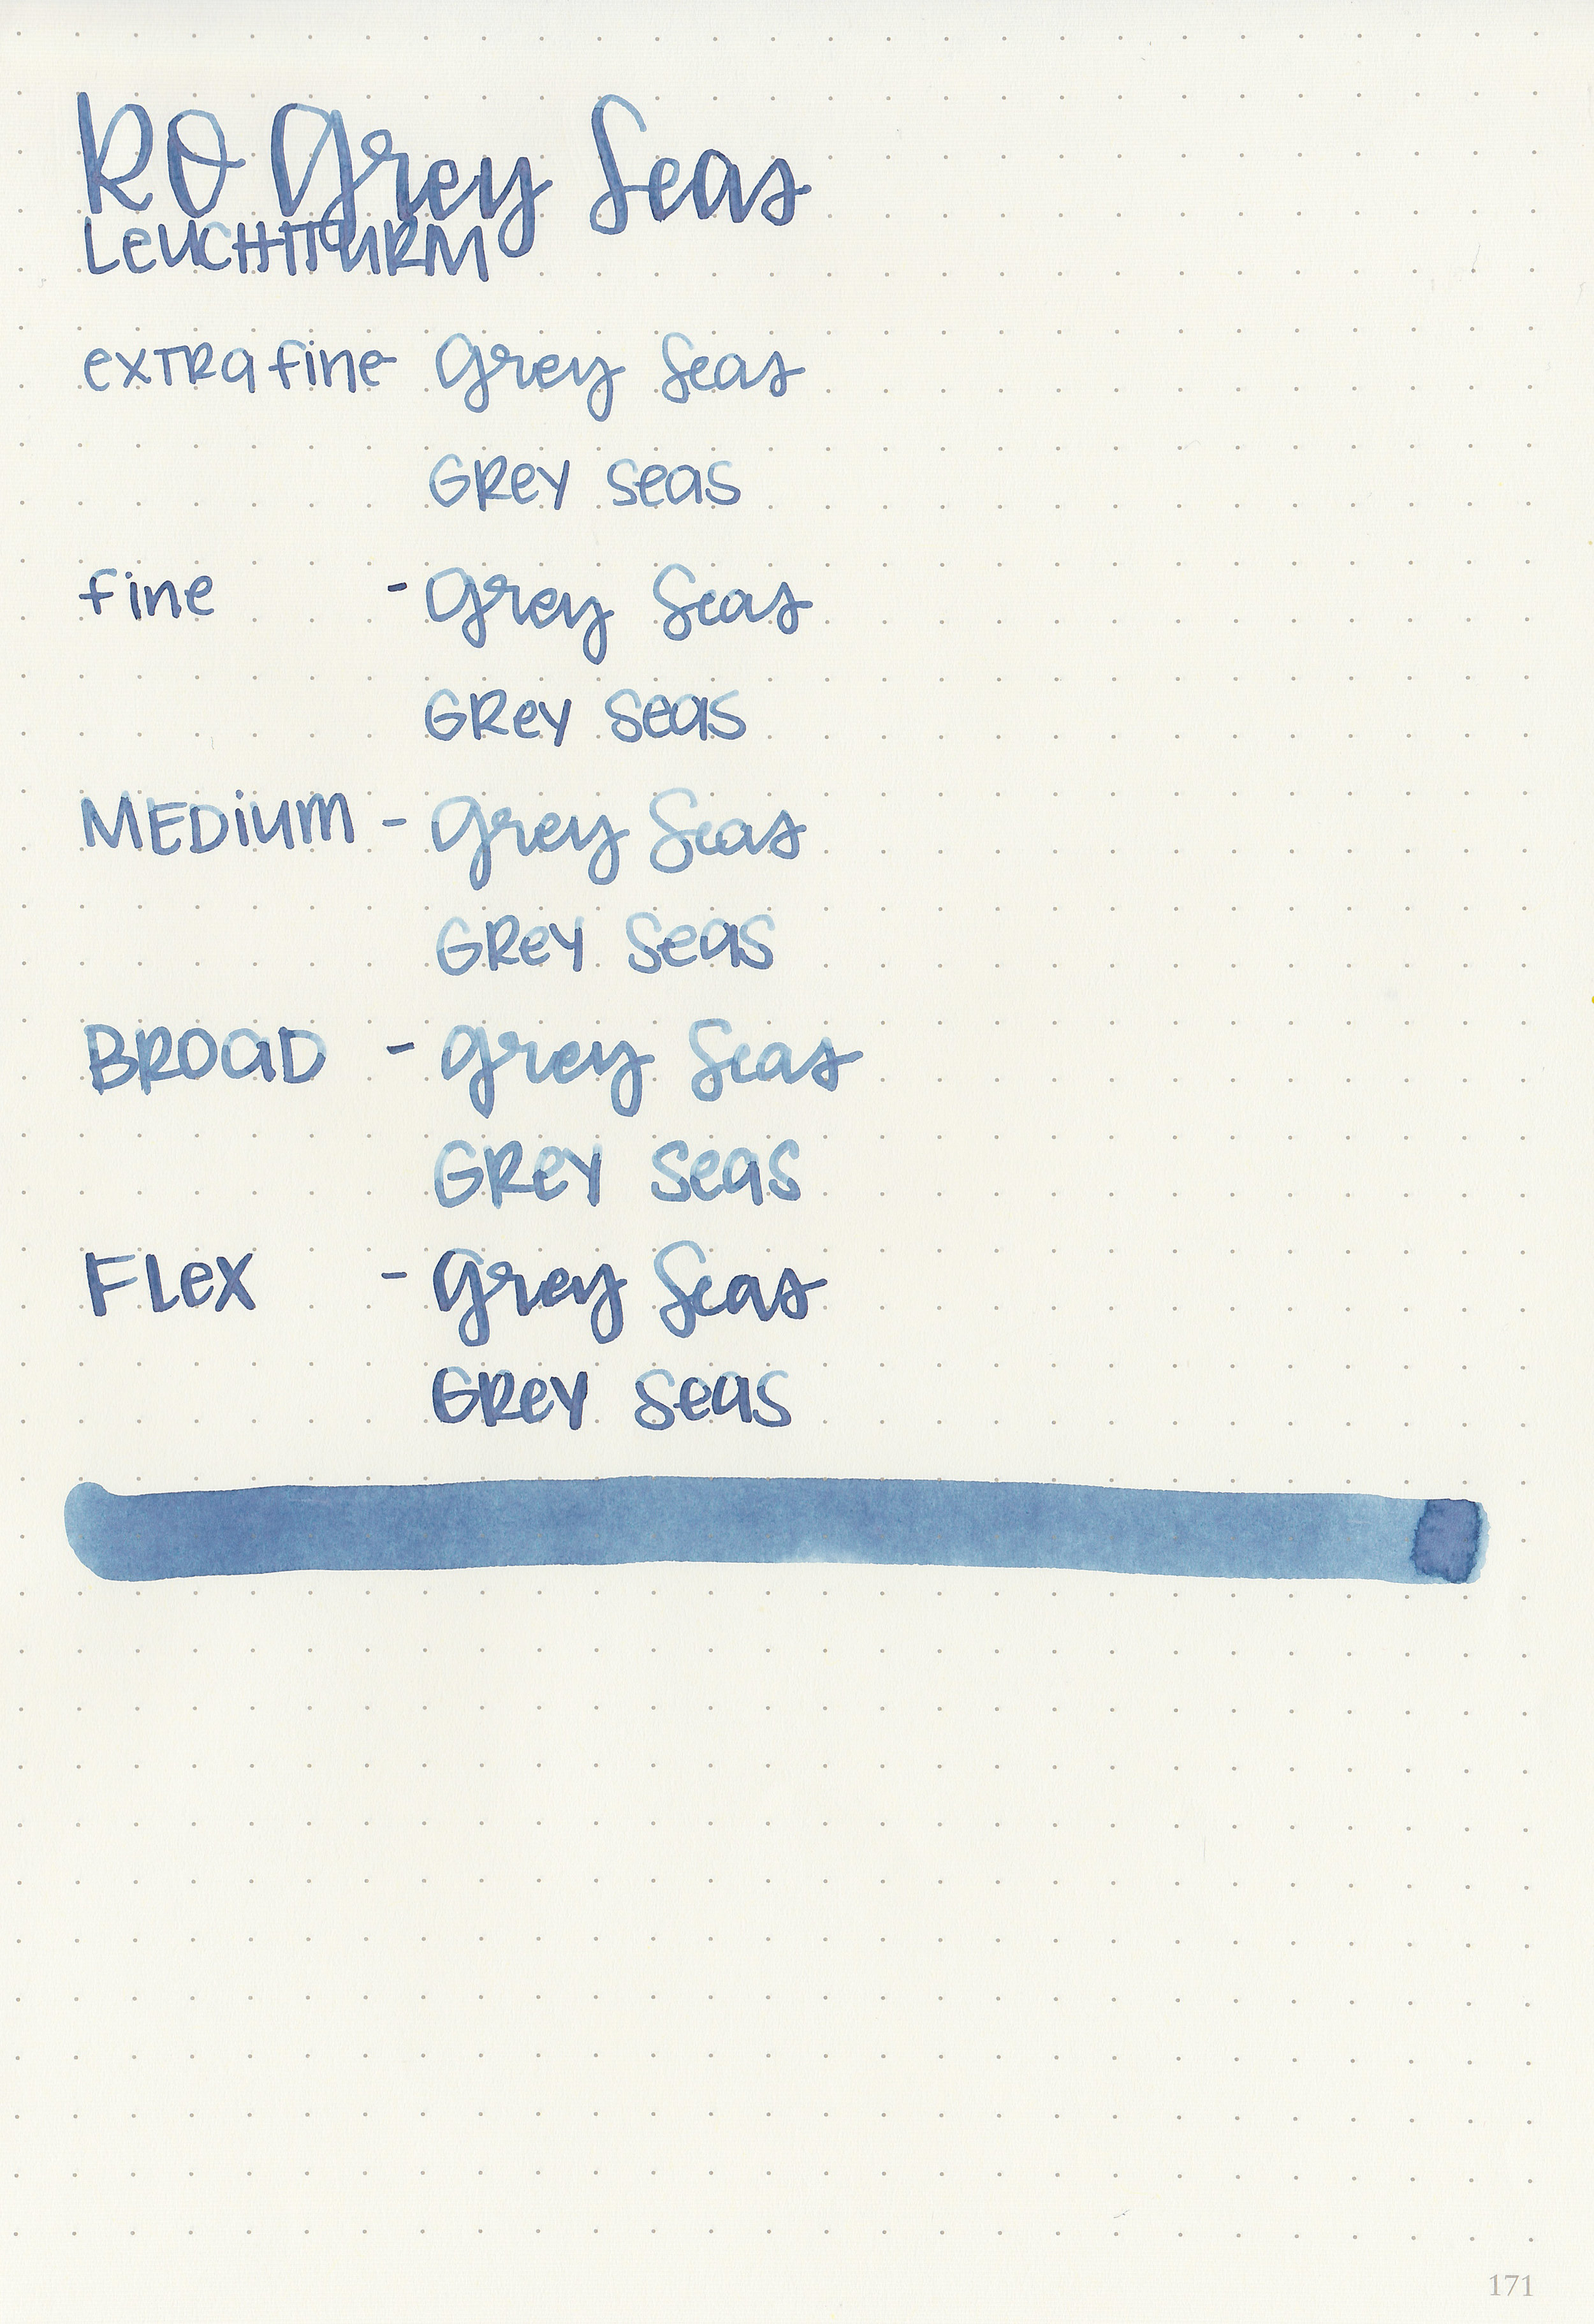 RO Grey Seas
LEUCHTTURM
EXTRA fine - Grey Seas
GRey seas
fine - Grey Seas
GRey seas
MEDiUM - Grey Seas
GRey Seas
BROaD - Grey Seas
GRey Seas
FLex - Grey Seas
GRey Seas
171